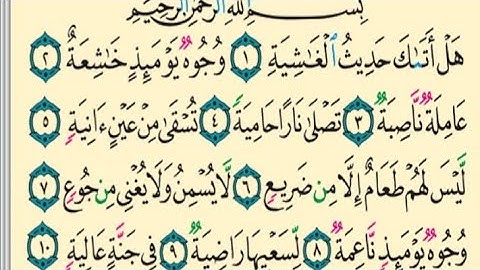 بِسْمِ اللَّهِ الرَّحْمَٰنِ الرَّحِيمِ
هَلْ أَتَىٰكَ حَدِيثُ ٱلْغَٰشِيَةِ ١ وُجُوهٌ يَوْمَئِذٍ خَٰشِعَةٌ ٢
عَامِلَةٌ نَّاصِبَةٌ ٣ تَصْلَىٰ نَارًا حَامِيَةً ٤ تُسْقَىٰ مِنْ عَيْنٍ ءَانِيَةٍ ٥
لَّيْسَ لَهُمْ طَعَامٌ إِلَّا مِن ضَرِيعٍ ٦ لَّا يُسْمِنُ وَلَا يُغْنِى مِن جُوعٍ ٧
وُجُوهٌ يَوْمَئِذٍ نَّاعِمَةٌ ٨ لِّسَعْيِهَا رَاضِيَةٌ ٩ فِى جَنَّةٍ عَالِيَةٍ ١٠